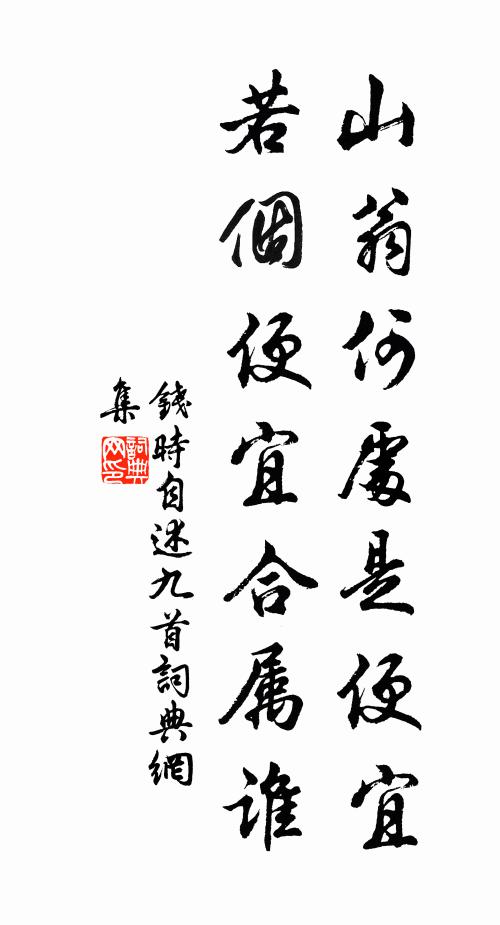 山翁何處是便宜
若個便宜合属誰
錢時自述九首詞典網
集
詞典
网印